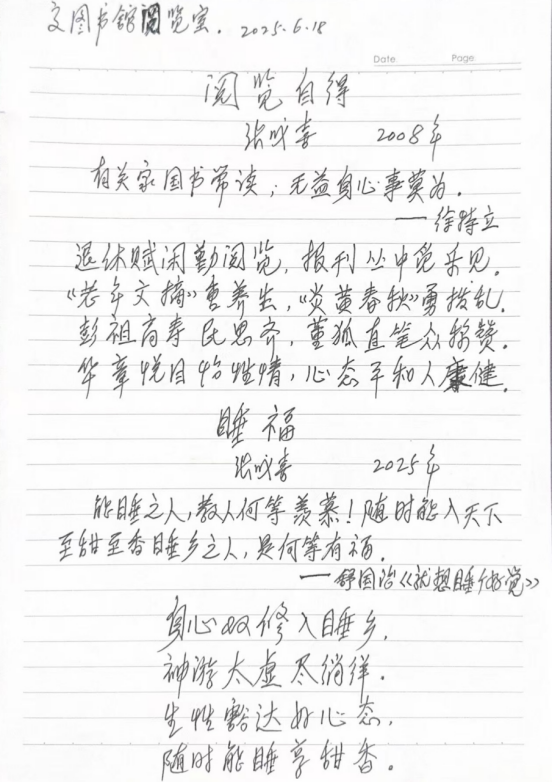 交图书馆阅览室. 2025.6.18
Date Page
阅览自得
张成喜 2008年
有关家国书常读;无益身心事莫为.
——徐特立
退休赋闲勤阅览,报刊丛中觅乐见.
《老年文摘》重养生,《炎黄春秋》勇拨乱.
彭祖高寿民思齐,董狐直笔众称赞.
华章悦目怡性情,心态平和人康健.
睡福
张成喜 2025年
能睡之人,教人何等羡慕!随时能入天下
至甜至香睡乡之人,是何等有福.
——舒国治《就想睡个好觉》
身心双修入睡乡,
神游太虚尽徜徉.
生性豁达好心态,
随时能睡享甜香.